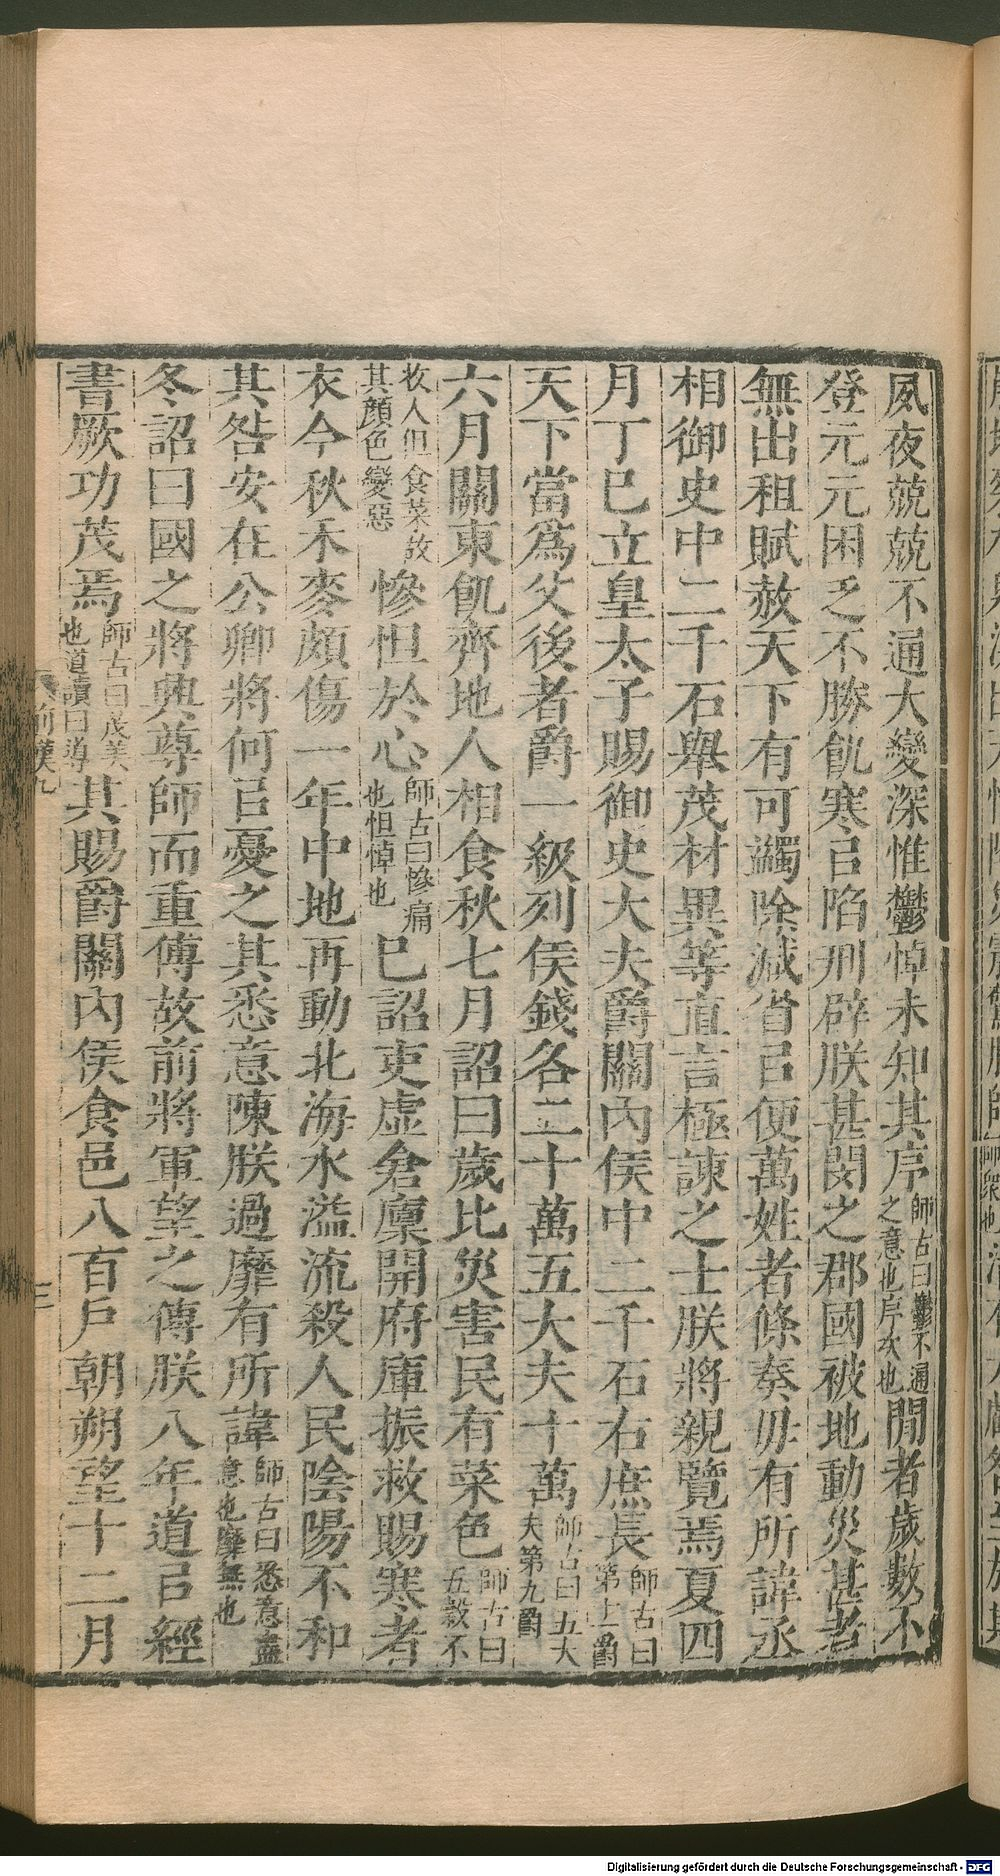 夙夜兢兢不通大變深惟鬱悼未知其序師古曰鬱不通之意也序次也閒者歲數不
登元元困乏不勝飢寒㠯陷刑辟朕甚閔之郡國被地動災甚者
無出租賦赦天下有可蠲除減省㠯便萬姓者條奏毋有所諱丞
相御史中二千石舉茂材異等直言極諫之士朕將親覽焉夏四
月丁巳立皇太子賜御史大夫爵關內侯中二千石右庶長師古曰第十一爵
天下當爲父後者爵一級列侯錢各二十萬五大夫十萬師古曰五大夫第九爵
六月關東飢齊地人相食秋七月詔曰歲比災害民有菜色師古曰五穀不
收人但食菜故其顏色變惡慘怛於心師古曰慘痛也怛悼也已詔吏虛倉廩開府庫振救賜寒者
衣今秋禾麥頗傷一年中地再動北海水溢流殺人民陰陽不和
其咎安在公卿將何㠯憂之其悉意陳朕過靡有所諱師古曰悉意盡意也靡無也
冬詔曰國之將興尊師而重傅故前將軍望之傅朕八年道㠯經
書厥功茂焉師古曰茂美也道讀曰導其賜爵關內侯食邑八百戶朝朔望十二月
前漢九
三
Digitalisierung gefördert durch die Deutsche Forschungsgemeinschaft - DFG